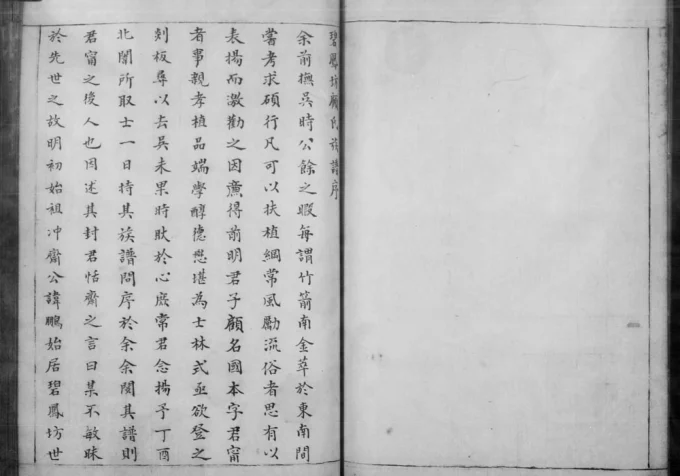 碧鳳坊顧氏族譜序
余前撫吳時公餘之暇每謂竹箭南金萃於東南間
嘗考求碩行凡可以扶植綱常風勵流俗者思有以
表揚而激勸之因廉得前明君子顧名國本字君甯
者事親孝植品端學醇德懋堪為士林式亟欲登之
剡板尋以去吳未果時耿於心庶常君念揚予丁酉
北闈所取士一日持其族譜問序於余余閱其譜則
君甯之後人也因述其封君恬齋之言曰某不敏昧
於先世之故明初始祖冲齋公諱鵬始居碧鳳坊世